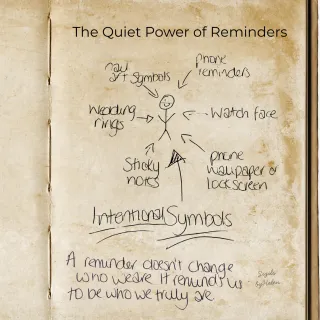 The Quiet Power of Reminders
phone
reminders
art symbols
wedding
rings
watch face
Sticky
notes
phone
wallpaper or
lockscreen
Intentional Symbols
A reminder doesn't change
who we are it reminds us
to be who we truly are